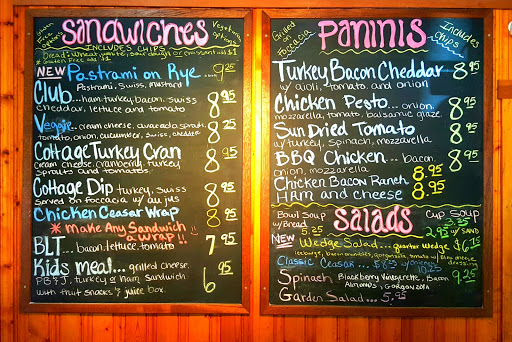 Sandwiches
Gluten free options
Vegetarian options
INCLUDES CHIPS
Bread: wheat, white, sour dough or croissant add $1
* Gluten Free add $1
NEW Pastrami on Rye 9.25
Pastrami, Swiss, mustard
Club... ham, turkey, bacon, swiss 8.95
cheddar, lettuce and tomato
Veggie... cream cheese, avocado spread, 8.25
tomato, onion, cucumber, swiss, cheddar
Cottage Turkey Cran 8.95
cream cheese, cranberry, turkey
sprouts and tomatoes.
Cottage Dip turkey, swiss 8.95
Served on foccacia w/ au jus
Chicken Ceasar Wrap 8.95
* Make Any Sandwich
a wrap!!
BLT... bacon, lettuce, tomato 7.95
Kids meal... grilled cheese, 6.95
PB & J, turkey or ham sandwich
with fruit snacks & juice box.
Grilled on Foccacia
Paninis
Includes Chips
Turkey Bacon Cheddar 8.95
w/ aioli, tomato, and onion
Chicken Pesto... onion, 8.95
mozzarella, tomato, balsamic glaze
Sun Dried Tomato 8.95
w/ turkey, spinach, mozzarella
BBQ Chicken... bacon 8.95
onion, mozzarella
Chicken Bacon Ranch 8.95
Ham and cheese 8.95
Salads
Bowl Soup
w/Bread 5.25
Cup Soup
2.95 w/ SAND
NEW Wedge Salad... quarter wedge $6.15
Classic Ceasar... $8.25 w/ chicken 10.25
Spinach Blackberry Vinaigrette, Bacon 9.25
Almonds, Gorgonzola
Garden Salad... 5.95